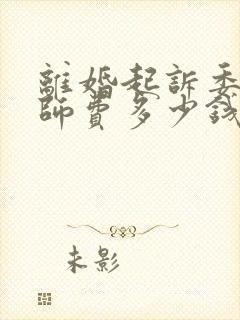 離婚起訴委
師費多少錢
未影